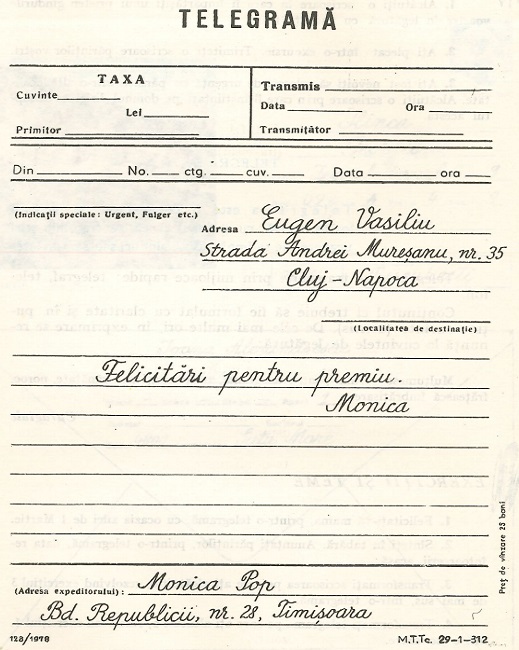 TELEGRAMĂ
TAXA
Cuvinte
Lei
Primitor
Transmis
Data Ora
Transmițător
Din No. ctg. cuv. Data ora
(Indicații speciale: Urgent, Fulger etc.)
Adresa Eugen Vasiliu
Strada Andrei Mureșanu, nr. 35
Cluj-Napoca
(Localitatea de destinație)
Felicitări pentru premiu.
Monica
(Adresa expeditorului): Monica Pop
Bd. Republicii, nr. 28, Timișoara
128/1978
M.T.Tc. 29-1-312
Preț de vînzare 25 bani